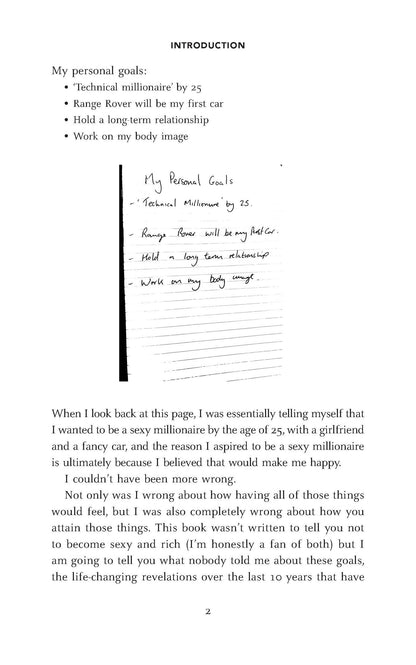 INTRODUCTION
My personal goals:
• 'Technical millionaire' by 25
• Range Rover will be my first car
• Hold a long-term relationship
• Work on my body image
My Personal Goals
- 'Technical Millionaire' by 25.
- Range Rover will be my first car.
- Hold a long term relationship
- Work on my body image.
When I look back at this page, I was essentially telling myself that
I wanted to be a sexy millionaire by the age of 25, with a girlfriend
and a fancy car, and the reason I aspired to be a sexy millionaire
is ultimately because I believed that would make me happy.
I couldn't have been more wrong.
Not only was I wrong about how having all of those things
would feel, but I was also completely wrong about how you
attain those things. This book wasn't written to tell you not
to become sexy and rich (I'm honestly a fan of both) but I
am going to tell you what nobody told me about these goals,
the life-changing revelations over the last 10 years that have
2